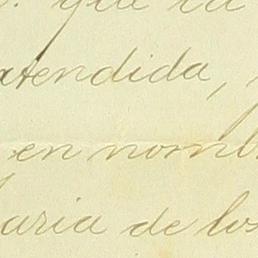 que la
atendida,
en nomb
aria de los